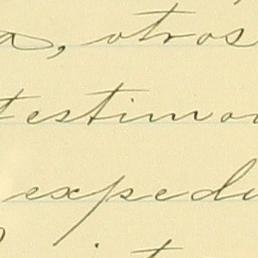 a, otros
testimo
expedi